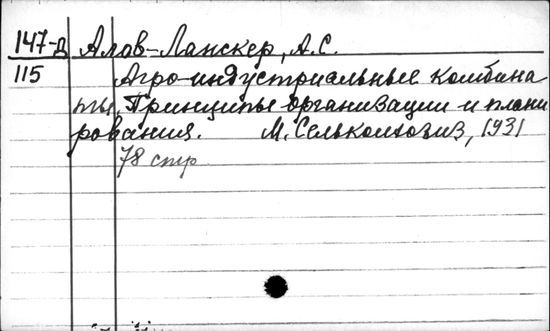 147-д Алов-Ланскер, А.С.
115 Агро-индустриальные комбина
ты. Принципы организации и плани
рования. М. Сельколхозгиз, 1931
78 стр